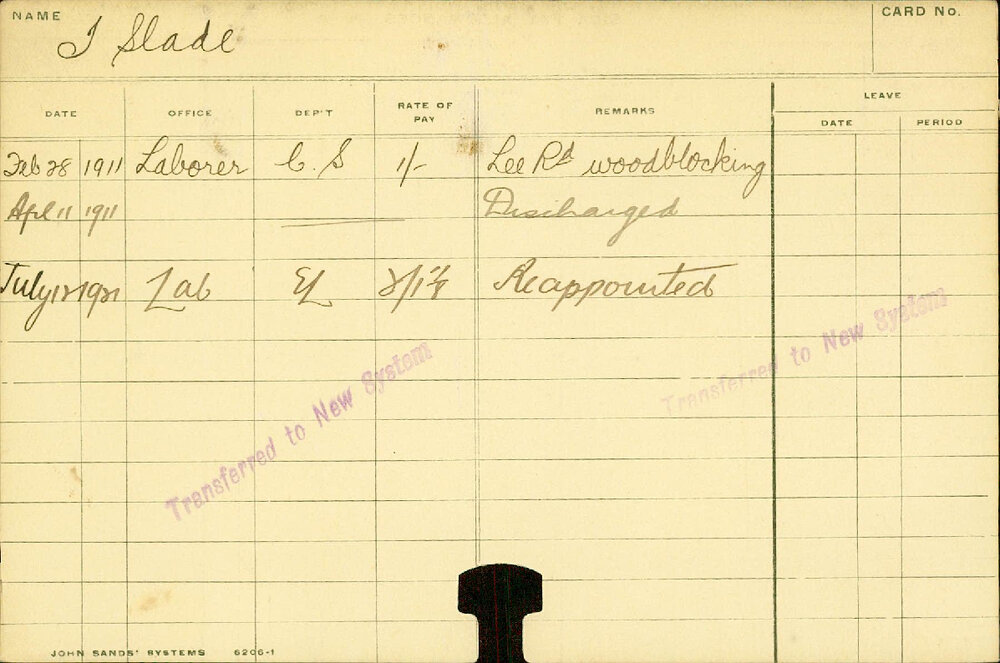 NAME J Slade CARD No.
DATE OFFICE DEP'T RATE OF PAY REMARKS LEAVE
DATE PERIOD
Feb 28 1911 Laborer C. S 1/- Lee Rd woodblocking
Apl 11 1911 Discharged
July 12 1921 Lab EL Reappointed
Transferred to New System
Transferred to New System
JOHN SANDS' SYSTEMS 6206-1